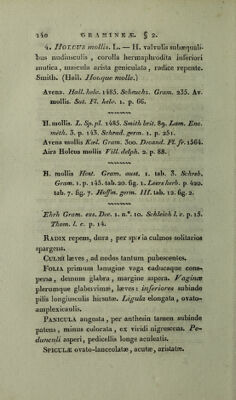 280 GRAMINEÆ. § 2.
4. HOLCUS mollis. L. — H. valvulis subæquali-
bus nudiusculis , corolla hermaphrodita inferiori
mutica, mascula arista geniculata , radice repente.
Smith. (Hall. Houque molle.)
Avena. Hall. helv. 1485. Scheuchz. Gram. 235. Av.
mollis. Sut. Fl. helv. 1. p. 66.
H. mollis. L. Sp. pl. 1485. Smith brit. 89. Lam. Enc.
méth. 3. p. 143. Schrad. germ. 1. p. 251.
Avena mollis Kœl. Gram. 300. Decand. Fl. fr. 1564.
Aira Holcus mollis Vill. delph. 2. p. 88.
H. mollis Host. Gram. aust. 1. tab. 3. Schreb.
Gram. 1. p. 145. tab. 20. fig. 1. Leers herb. p. 420.
tab. 7. fig. 7. Hoffm. germ. III. tab. 12. fig. 2.
Ehrh Gram. exs. Dec. 1. n.° 10. Schleich l. c. p. 15.
Thom. l. c. p. 14.
RADIX repens, dura , per spatia culmos solitarios
spargens.
CULMI læves , ad nodos tantum pubescentes.
FOLIA primum lanugine vaga caducaque cons-
persa , demum glabra , margine aspera. Vaginæ
plerumque glaberrimæ, læves : inferiores subinde
pilis longiusculis hirsutæ. Ligula elongata , ovato-
amplexicaulis.
PANICULA angusta , per anthesin tamen subinde
patens , minus colorata , ex viridi nigrescens. Pe-
dunculi asperi, pedicellis longe aculeatis.
SPICULÆ ovato-lanceolatæ, acutæ, aristatæ.